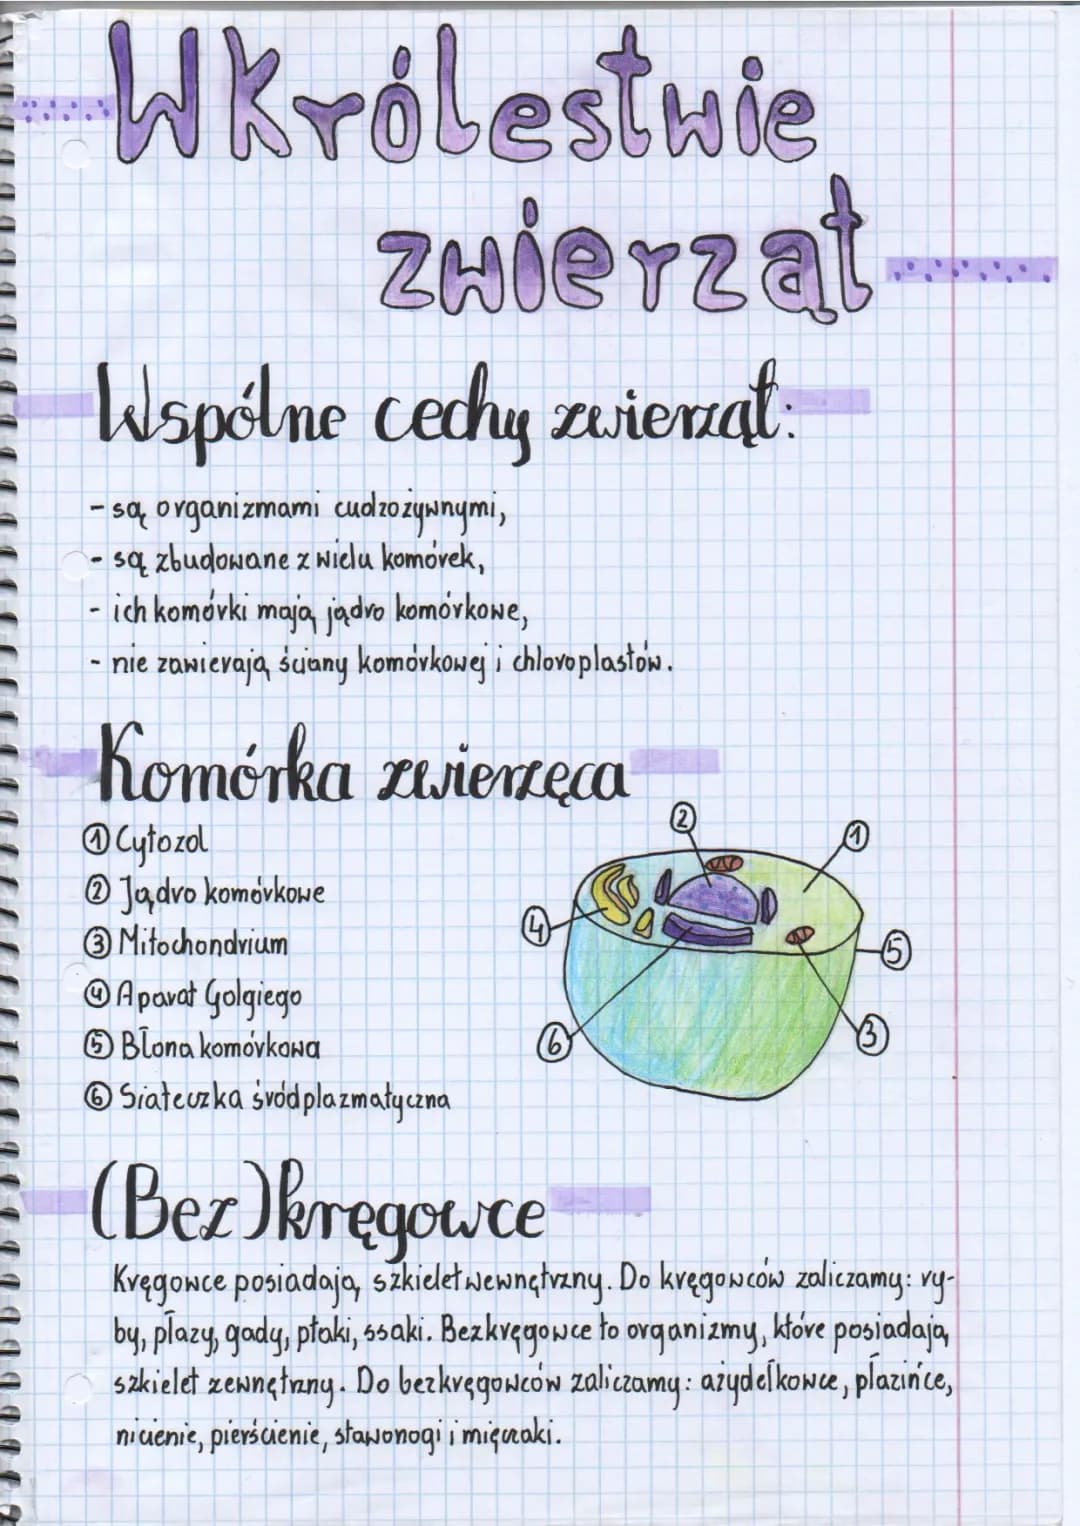 W królestwie
zwierząt
Wspólne cechy zwierząt:
- są organizmami cudzożywnymi,
- są zbudowane z wielu komórek,
- ich komórki mają jądro komórkowe,
- nie zawierają ściany komórkowej i chloroplastów.
Komórka zwierzęca
① Cytozol
② Jądro komórkowe
③ Mitochondrium
④ Aparat Golgiego
⑤ Błona komórkowa
⑥ Siateczka śródplazmatyczna
②
①
④
⑤
⑥
③
(Bez)kręgowce
Kręgowce posiadają szkielet wewnętrzny. Do kręgowców zaliczamy: ry-
by, płazy, gady, ptaki, ssaki. Bezkręgowce to organizmy, które posiadają
szkielet zewnętrzny. Do bezkręgowców zaliczamy: parzydełkowce, płazińce,
nicienie, pierścienie, stawonogi i mięczaki.